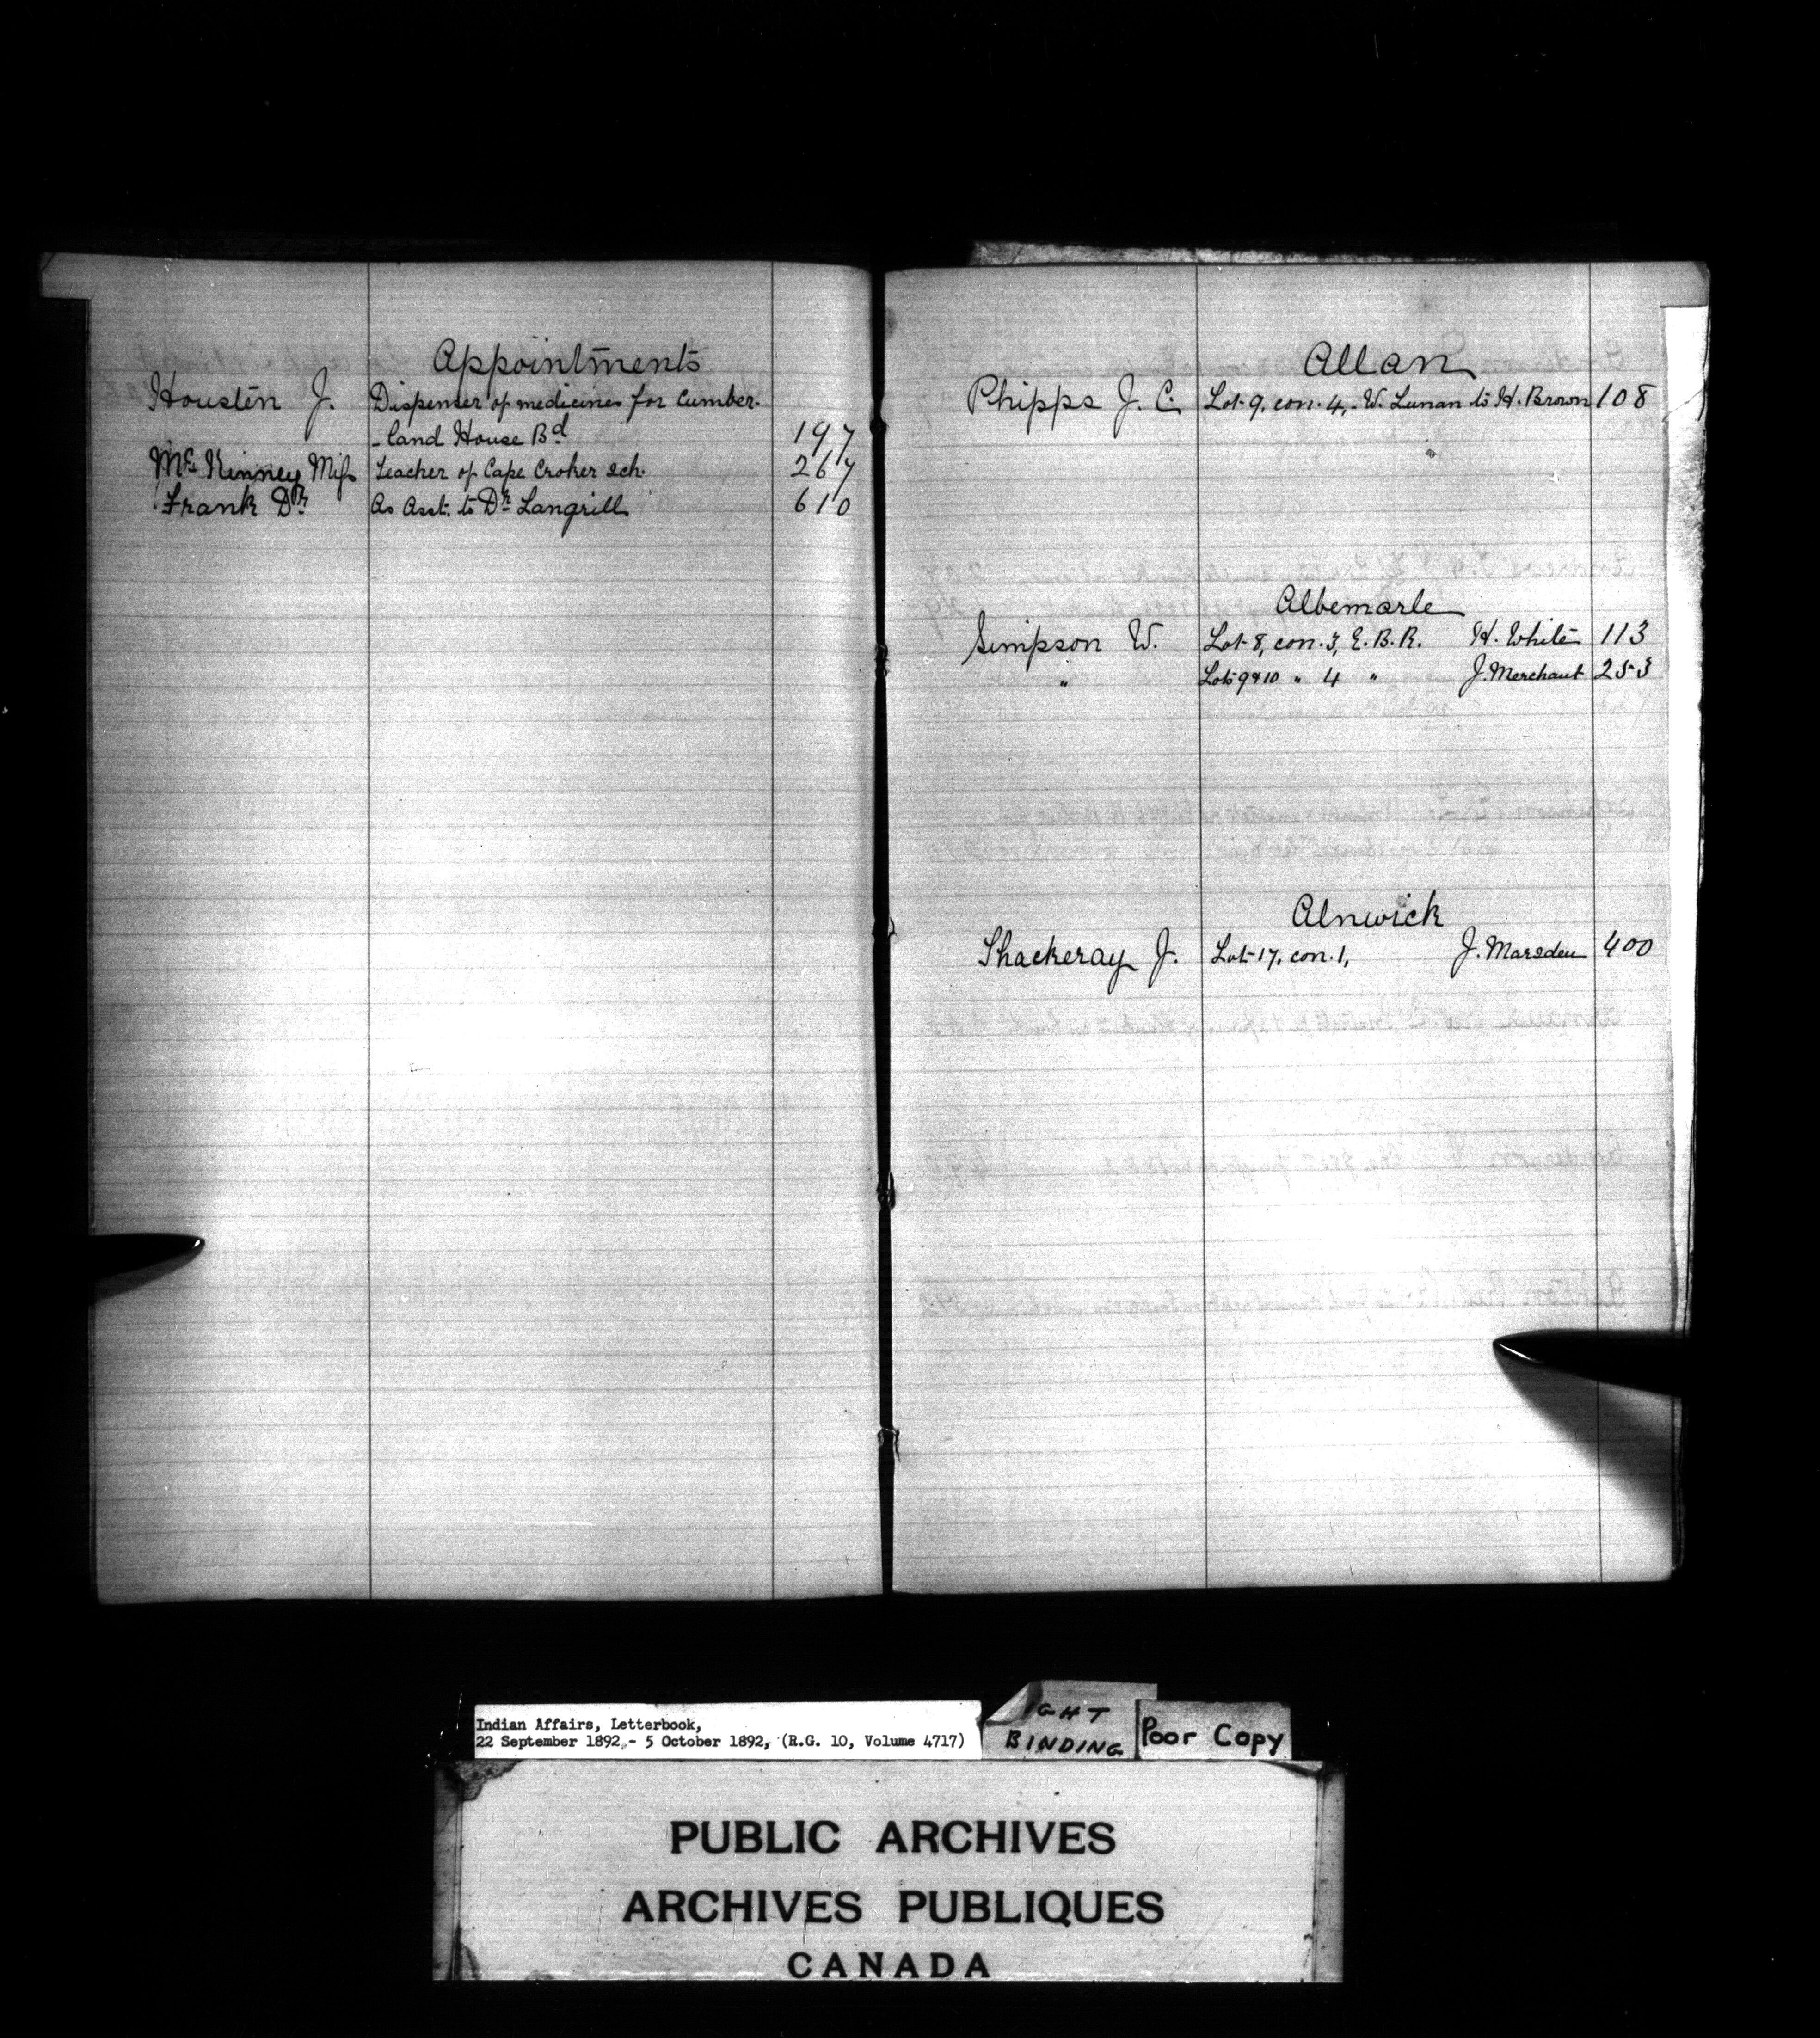 Appointments
Houston J. Dispenser of medicines for Cumber-
-land House Bd 197
McKinney Miss Teacher of Cape Croker sch. 267
Frank Dr. As Asst. to Dr Langrill 610
Allan
Phipps J. C. Lot 9, con. 4, W. Lunan to H. Brown 108
Albemarle
Simpson W. Lot 8, con. 3, E. B. R. H. White 113
" Lots 9 & 10 " 4 " J. Merchant 253
Alnwick
Thackeray J. Lot 17, con. 1, J. Marsden 400
Indian Affairs, Letterbook,
22 September 1892 - 5 October 1892, (R.G. 10, Volume 4717)
IGHT
BINDING
Poor Copy
PUBLIC ARCHIVES
ARCHIVES PUBLIQUES
CANADA